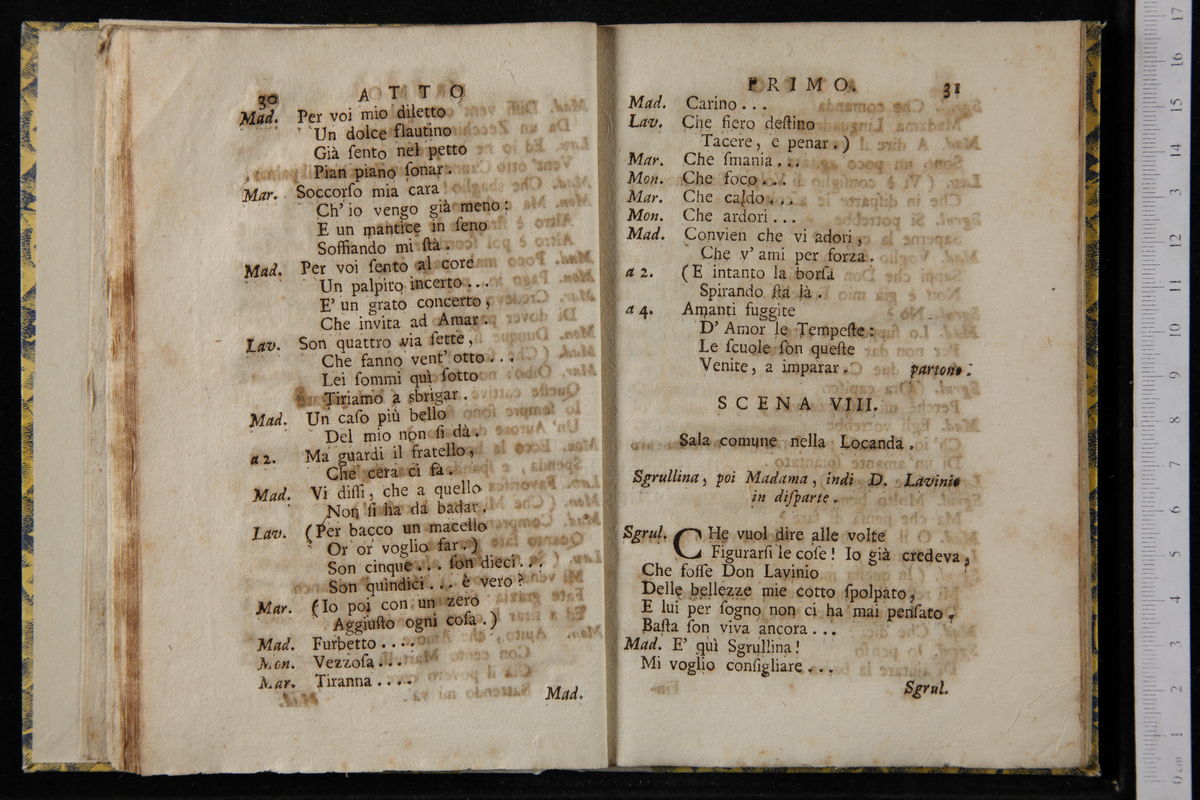 30 ATTO
Mad. Per voi mio diletto
Un dolce flautino
Già ſento nel petto
Pian piano ſonar.
Mar. Soccorſo mia cara
Ch' io vengo già meno:
E un mantice in ſeno
Soffiando mi ſtà.
Mad. Per voi ſento al core
Un palpito incerto...
E' un grato concerto,
Che invita ad Amar.
Lav. Son quattro via ſette,
Che fanno vent' otto...
Lei ſommi quì ſotto
Tiriamo a sbrigar.
Mad. Un caſo più bello
Del mio non ſi dà.
a 2. Ma guardi il fratello,
Che cera ci fa.
Mad. Vi diſſi, che a quello
Non ſi ha da badar.
Lav. (Per bacco un macello
Or or voglio far.)
Son cinque... ſon dieci...
Son quindici... è vero?
Mar. (Io poi con un zero
Aggiuſto ogni coſa.)
Mad. Furbetto....
Mon. Vezzoſa...
Mar. Tiranna....
Mad.
PRIMO. 31
Mad. Carino...
Lav. Che fiero deſtino
Tacere, e penar.)
Mar. Che ſmania...
Mon. Che foco...
Mar. Che caldo...
Mon. Che ardori...
Mad. Convien che vi adori,
Che v' ami per forza.
a 2. (E intanto la borſa
Spirando ſta là.
a 4. Amanti fuggite
D' Amor le Tempeſte:
Le ſcuole ſon queſte
Venite, a imparar. partono.
SCENA VIII.
Sala comune nella Locanda.
Sgrullina, poi Madama, indi D. Lavinio
in diſparte.
Sgrul. CHe vuol dire alle volte
Figurarſi le coſe! Io già credeva,
Che foſſe Don Lavinio
Delle bellezze mie cotto ſpolpato,
E lui per ſogno non ci ha mai penſato.
Baſta ſon viva ancora...
Mad. E' quì Sgrullina!
Mi voglio conſigliare...
Sgrul.
17
16
15
14
13
12
11
10
9
8
7
6
5
4
3
2
1
0 cm